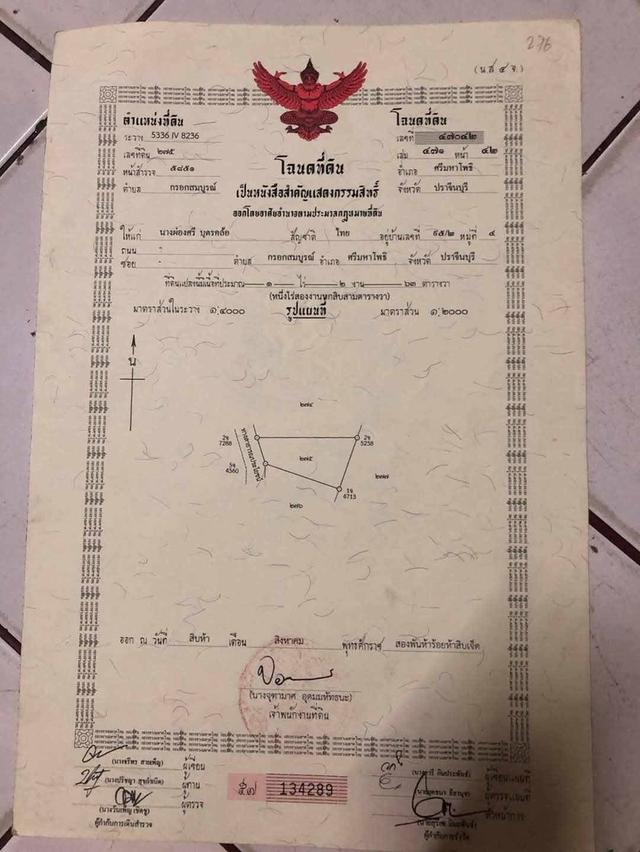 276
(น.ส. ๔ จ.)
ตำแหน่งที่ดิน
ระวาง 5336 IV 8236
เลขที่ดิน ๒๗๕
หน้าสำรวจ ๕๘๕๑
ตำบล กรอกสมบูรณ์
โฉนดที่ดิน
เลขที่ ๔๗๐๔๒
เล่ม ๔๗๑ หน้า ๔๒
อำเภอ ศรีมหาโพธิ
จังหวัด ปราจีนบุรี
โฉนดที่ดิน
เป็นหนังสือสำคัญแสดงกรรมสิทธิ์
ออกโดยอาศัยอำนาจตามประมวลกฎหมายที่ดิน
ให้แก่ นางผ่องศรี บุตรคล้อ สัญชาติ ไทย อยู่บ้านเลขที่ ๙๕/๒ หมู่ที่ ๔
ถนน -
ซอย - ตำบล กรอกสมบูรณ์ อำเภอ ศรีมหาโพธิ จังหวัด ปราจีนบุรี
ที่ดินแปลงนี้มีเนื้อที่ประมาณ ๑ ไร่ ๒ งาน ๖๓ ตารางวา
(หนึ่งไร่สองงานหกสิบสามตารางวา)
มาตราส่วนในระวาง ๑:๔๐๐๐ รูปแผนที่ มาตราส่วน ๑:๒๐๐๐
น
๒๗๔
2จ 7288
2จ 5238
ทางสาธารณประโยชน์
๒๗๕
5จ 4360
๒๗๗
1จ 4713
๒๗๖
ออก ณ วันที่ สิบห้า เดือน สิงหาคม พุทธศักราช สองพันห้าร้อยห้าสิบเจ็ด
(นางจุฑามาศ อุดมมหัทธนะ)
เจ้าพนักงานที่ดิน
ผู้เขียน
ผู้ทาน
ผู้ตรวจ
ผู้กำกับการเดินสำรวจ
๕๗ 134289
ผู้เขียนแผนที่
ผู้ตรวจแผนที่
หัวหน้าการ
ผู้กำกับการรังวัด